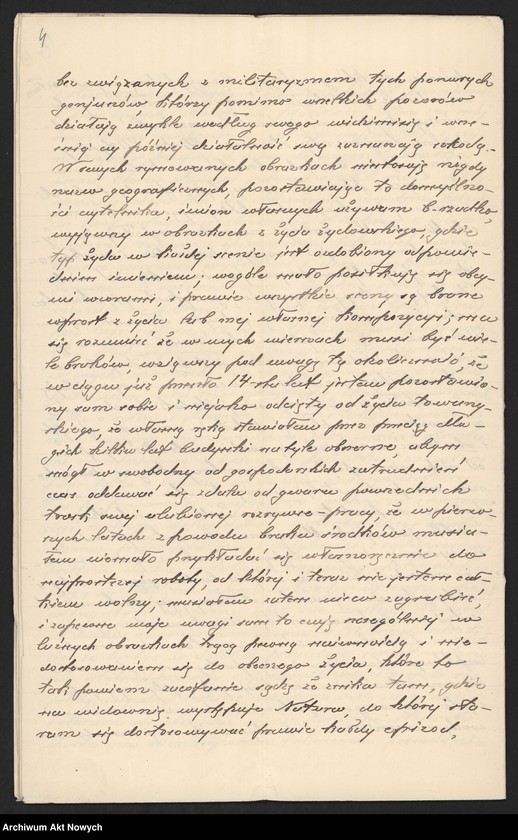 4
bez związanych z militaryzmem tych ponurych
którzy pomimo wszelkich pozorów
działają zwykle według swego widzimisię i wcze-
śniej czy później działalność swą zaznaczają szkodą.
W swych rymowanych obrazkach nigdy
nazw geograficznych, pozostawiając to domyślno-
ści czytelnika, imion własnych używam b. rzadko,
wyjąwszy w obrazkach z życia żydowskiego, gdzie
typ żyda w każdej scenie jest ozdobiony odpowie-
dniem imieniem; wogóle mało posiłkuję się obcy-
mi wzorami, i prawie wszystkie sceny są brane
wprost z życia lub mej własnej kompozycyi; ma
się rozumieć że w mych wierszach musi być wie-
le braków, wziąwszy pod uwagę tę okoliczność, że
w ciągu już 14stu lat jestem pozostawio-
ny sam sobie i niejako odcięty od życia towarzy-
skiego, że własną ręką stawiałem przez przeciąg dłu-
gich kilku lat budynki na tyle obszerne, abym
mógł w swobodny od gospodarskich zatrudnień
czas oddawać się zdala od gwaru powszednich
trosk swej ulubionej rozrywce-pracy, że w pierw-
szych latach z powodu braku środków musia-
łem niemało przykładać się własnoręcznie do
najprostszej roboty, od której i teraz nie jestem cał-
kiem wolny; musiałem zatem nieco zagrubieć,
i zapewne moje uwagi sam to czuję szczególniej w
luźnych obrazkach trącą pewną naiwnością i nie-
dostosowaniem się do obecnego życia, które to
tak powiem zacofanie sądzę że znika tam, gdzie
na widownię występuje Natura, do której sta-
ram się dostosowywać prawie każdy epizod,
Archiwum Akt Nowych